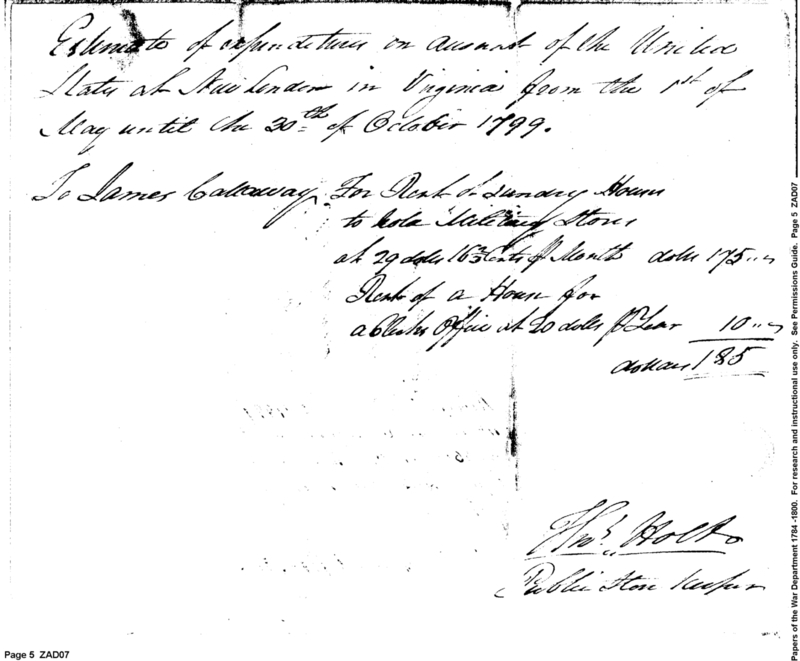 Estimate of expenditures on account of the United
States at New London in Virginia from the 1st of
May until the 30th of October 1799.
To James Callaway For Rent of Sundry Houses
to hold Military Stores
at 29 dolls 16 2/3 Cents ⅌ Month dolls 175 " "
Rent of a House for
a Clerks Office at 20 dolls ⅌ Year 10 " "
dollars 185
Thos. Holt
Public Store Keeper
Page 5 ZAD07
Papers of the War Department 1784 -1800. For research and instructional use only. See Permissions Guide. Page 5 ZAD07